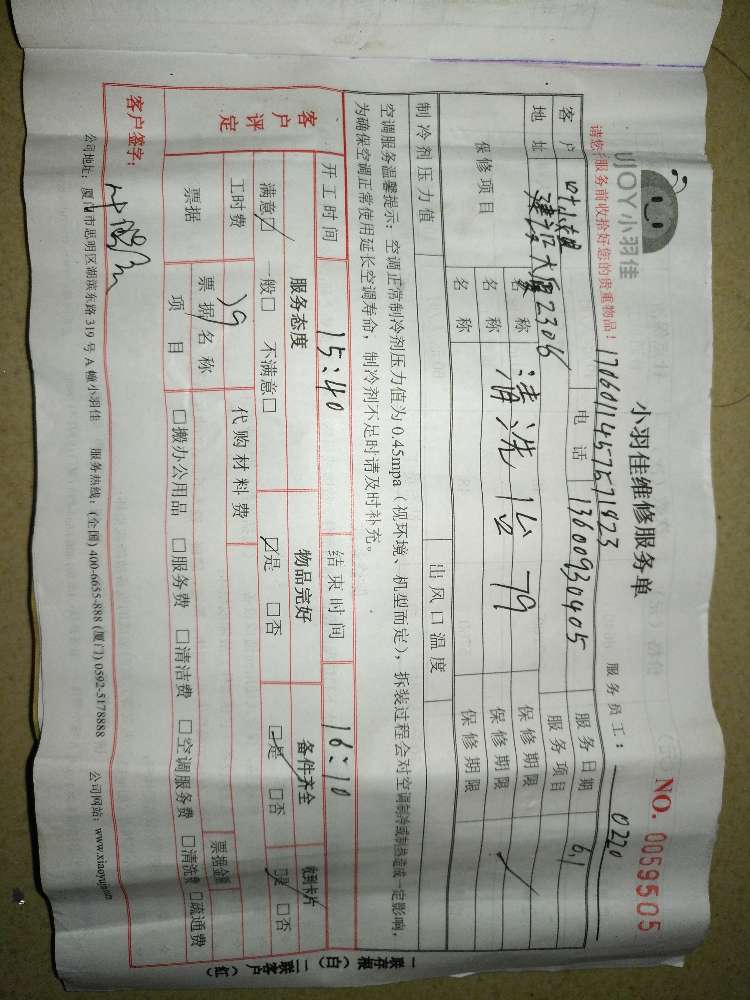 JOY小羽佳
小羽佳维修服务单
NO. 0059505
请您服务前收拾好您的贵重物品！
1706011457571923
服务员工： 0220
客户 叶小姐 电话 13600930905 服务日期 6.1
地址 建设大厦2306 服务项目
保修项目 名称 清洗 79 保修期限
名称 保修期限
名称 保修期限
制冷剂压力值 出风口温度
空调服务温馨提示：空调正常制冷剂压力值为0.45mpa（视环境、机型而定），拆装过程会对空调制冷或制热造成一定影响，
为确保空调正常使用延长空调寿命，制冷剂不足时请及时补充。
开工时间 15:40 结束时间 16:10
客户评定 服务态度 物品完好 备件齐全 收到卡片
满意☑ 一般□ 不满意□ ☑是 □否 ☑是 □否 ☑是 □否
工时费 79 代购材料费
票据 票据名称 票据金额
项目 □搬办公用品 □服务费 □清洁费 □空调服务费 □清洗费 □疏通费
客户签字：
公司地址：厦门市思明区湖滨东路319号A幢小羽佳 服务热线：(全国) 400-6655-888 (厦门) 0592-5178888 公司网站：www.xiaoyujia
一联存根（白）二联客户（红）